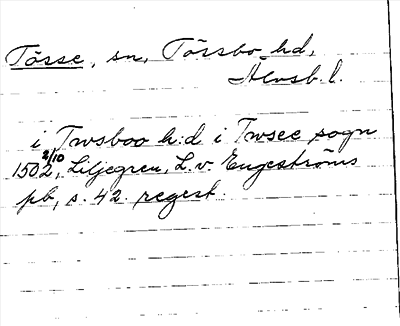 Tösse, sn, Tössbo hd,
Älvsb. l.
i Twsboo h:d i Twsee sogn
2/10
1502, Liljegren, L. v. Engeströms
pb, s. 42. regest.